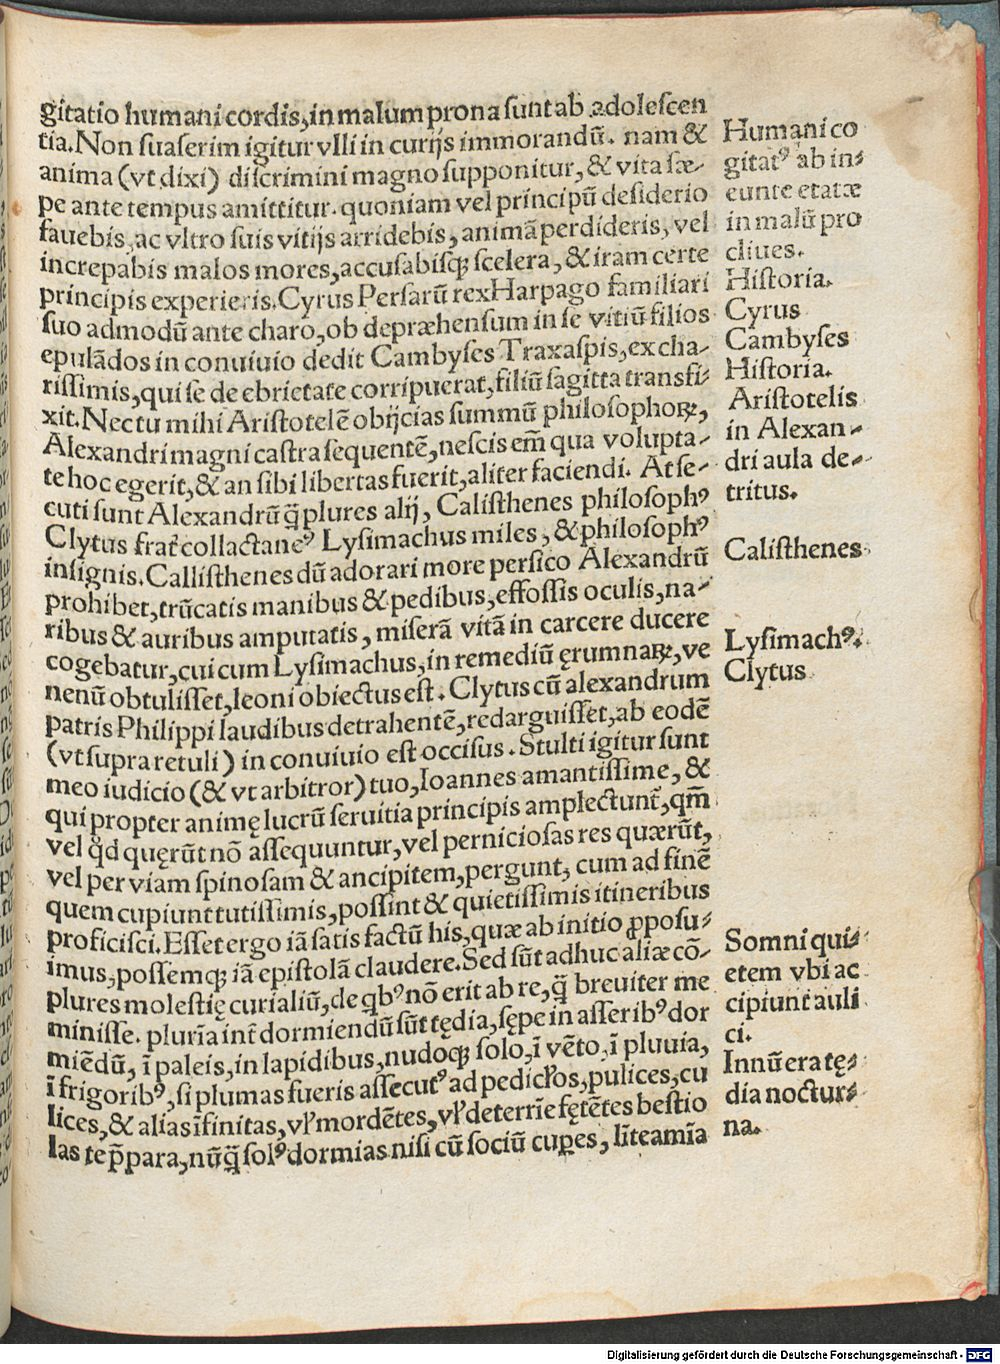 gitatio humani cordis, in malum prona sunt ab adolescen
tia. Non suaserim igitur vlli in curijs immorandū. nam &
anima (vt dixi) discrimini magno supponitur, & vita sæ-
pe ante tempus amittitur. quoniam vel principū desiderio
fauebis, ac vltro suis vitijs arridebis, animā perdideris, vel
increpabis malos mores, accusabisqꝫ scelera, & iram certe
principis experieris. Cyrus Persarū rex Harpago familiari
suo admodū ante charo, ob depræhensum in se vitiū filios
epulādos in conuiuio dedit Cambyses Traxaspis, ex cha-
rissimis, qui se de ebrietate corripuerat, filiū sagitta transfi-
xit. Nec tu mihi Aristotelē obijcias summū philosophoꝝ,
Alexandri magni castra sequentē, nescis em̄ qua volupta-
te hoc egerit, & an sibi libertas fuerit, aliter faciendi. At se-
cuti sunt Alexandrū q̄ plures alij, Calisthenes philosophꝰ
Clytus frat̄ collactaneꝰ Lysimachus miles, & philosophꝰ
insignis. Callisthenes dū adorari more persico Alexandrū
prohibet, trūcatis manibus & pedibus, effossis oculis, na-
ribus & auribus amputatis, miserā vitā in carcere ducere
cogebatur, cui cum Lysimachus, in remediū ęrumnaꝝ, ve
nenū obtulisset, leoni obiectus est. Clytus cū alexandrum
patris Philippi laudibus detrahentē, redarguisset, ab eodē
(vt supra retuli) in conuiuio est occisus. Stulti igitur sunt
meo iudicio (& vt arbitror) tuo, Ioannes amantissime, &
qui propter animę lucrū seruitia principis amplectunt̄, qm̄
vel qd̄ quęrūt nō assequuntur, vel perniciosas res quærūt,
vel per viam spinosam & ancipitem, pergunt, cum ad finē
quem cupiunt tutissimis, possint & quietissimis itineribus
proficisci. Esset ergo iā satis factū his, quæ ab initio ꝓposu-
imus, possemqꝫ iā epistolā claudere. Sed sūt adhuc aliæ cō-
plures molestię curialiū, de qbꝰ nō erit ab re, q̄ breuiter me
minisse. pluria īnt̄ dormiendū sūt tędia, sępe in asseribꝰ dor
miēdū, ī paleis, in lapidibus, nudoqꝫ solo, ī vēto, ī pluuia,
ī frigoribꝰ, si plumas fueris assecutꝰ ad pediclos, pulices, cu
lices, & alias īfinitas, vl mordētes, vl deterrīe fętētes bestio
las te p̄para, nūq̄ solꝰ dormias nisi cū sociū cuꝑes, līteamīa
Humani co
gitatꝰ ab in-
eunte etatæ
in malū pro
cliues.
Historia.
Cyrus
Cambyses
Historia.
Aristotelis
in Alexan-
dri aula de-
tritus.
Calisthenes
Lysimachꝰ.
Clytus
Somni qui-
etem vbi ac
cipiunt auli
ci.
Innūera tę-
dia noctur-
na.
Digitalisierung gefördert durch die Deutsche Forschungsgemeinschaft - DFG